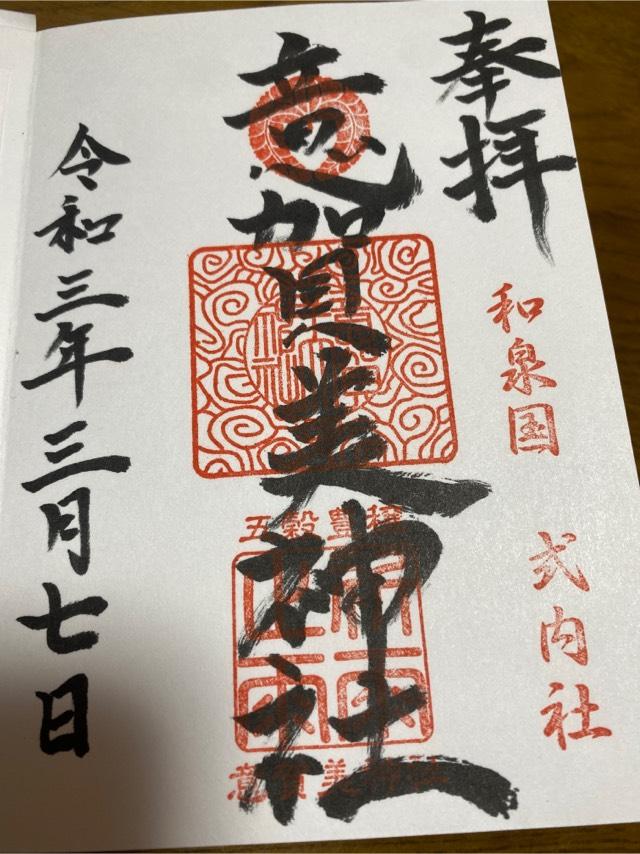 奉拝
和泉国 式内社
意賀美神社
五穀豊穣
意賀美神社
令和三年三月七日